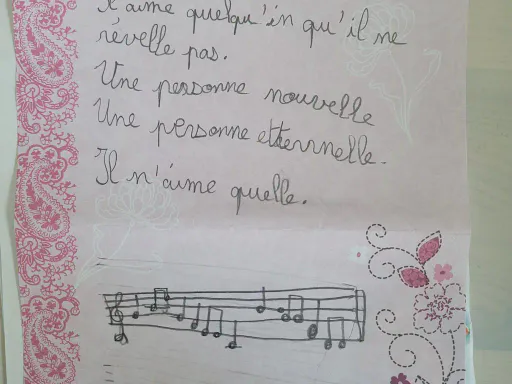 J'aime quelqu'un qu'il ne
révelle pas.
Une personne nouvelle
Une personne etternnelle.
Il n'aime quelle.